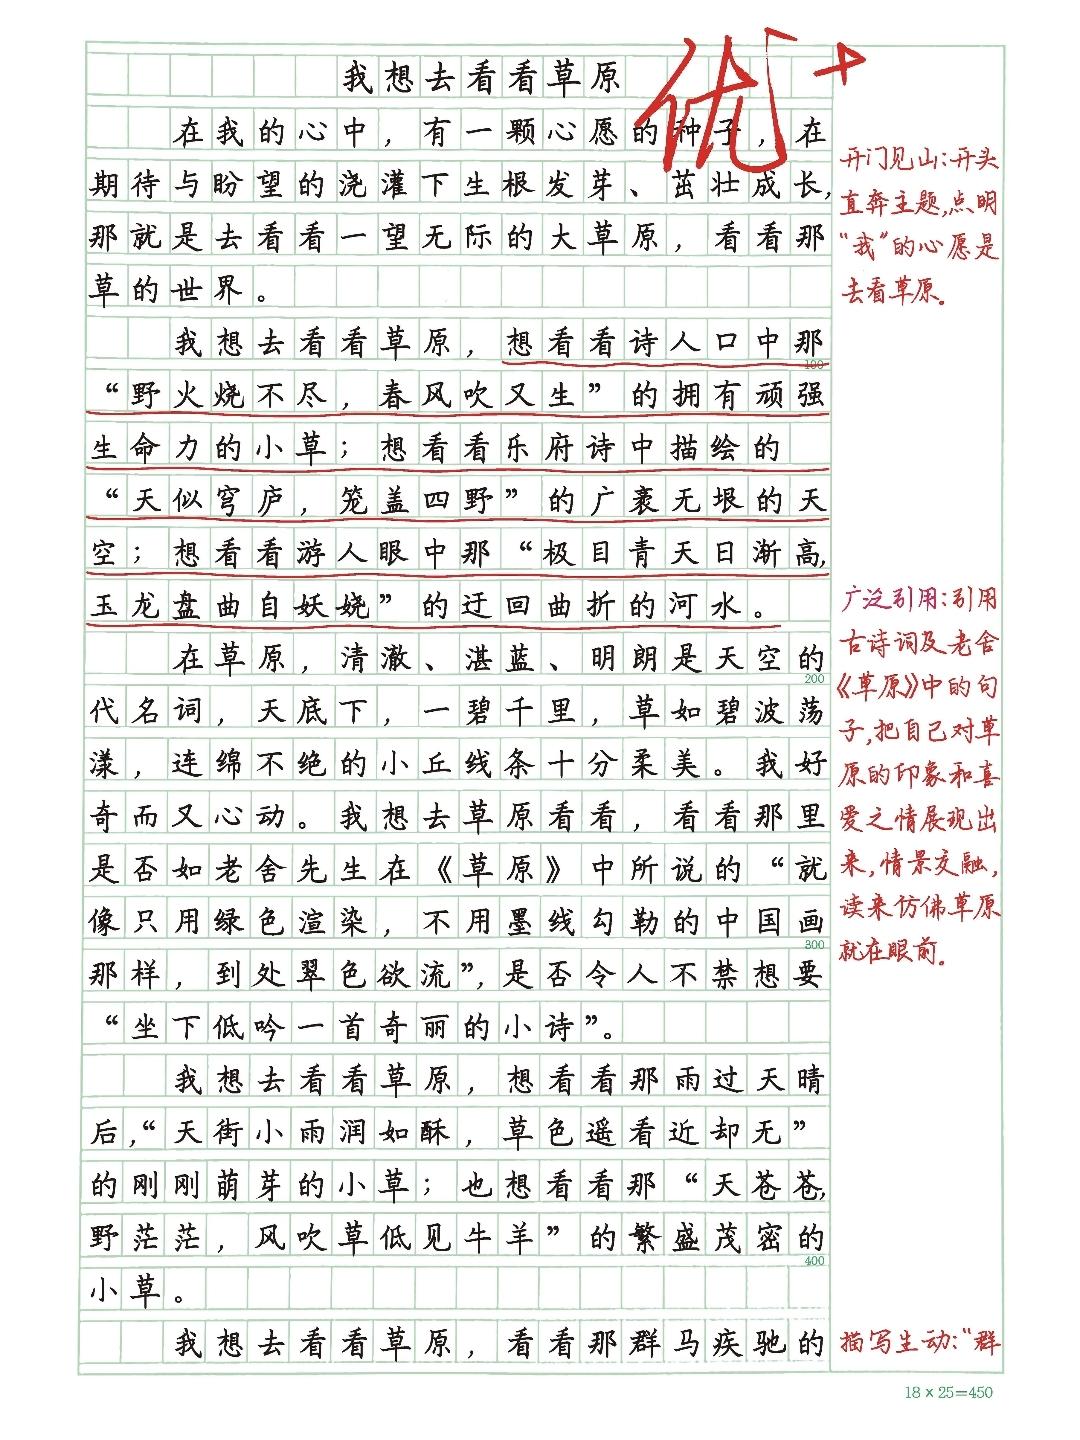 我想去看看草原
优+
在我的心中，有一颗心愿的种子，在
期待与盼望的浇灌下生根发芽、茁壮成长，
那就是去看看一望无际的大草原，看看那
草的世界。
我想去看看草原，想看看诗人口中那
100
“野火烧不尽，春风吹又生”的拥有顽强
生命力的小草；想看看乐府诗中描绘的
“天似穹庐，笼盖四野”的广袤无垠的天
空；想看看游人眼中那“极目青天日渐高，
玉龙盘曲自妖娆”的迂回曲折的河水。
在草原，清澈、湛蓝、明朗是天空的
200
代名词，天底下，一碧千里，草如碧波荡
漾，连绵不绝的小丘线条十分柔美。我好
奇而又心动。我想去草原看看，看看那里
是否如老舍先生在《草原》中所说的“就
像只用绿色渲染，不用墨线勾勒的中国画
300
那样，到处翠色欲流”，是否令人不禁想要
“坐下低吟一首奇丽的小诗”。
我想去看看草原，想看看那雨过天晴
后，“天街小雨润如酥，草色遥看近却无”
的刚刚萌芽的小草；也想看看那“天苍苍，
野茫茫，风吹草低见牛羊”的繁盛茂密的
400
小草。
我想去看看草原，看看那群马疾驰的
开门见山：开头
直奔主题，点明
“我”的心愿是
去看草原。
广泛引用：引用
古诗词及老舍
《草原》中的句
子，把自己对草
原的印象和喜
爱之情展现出
来，情景交融，
读来仿佛草原
就在眼前。
描写生动：“群
18×25=450